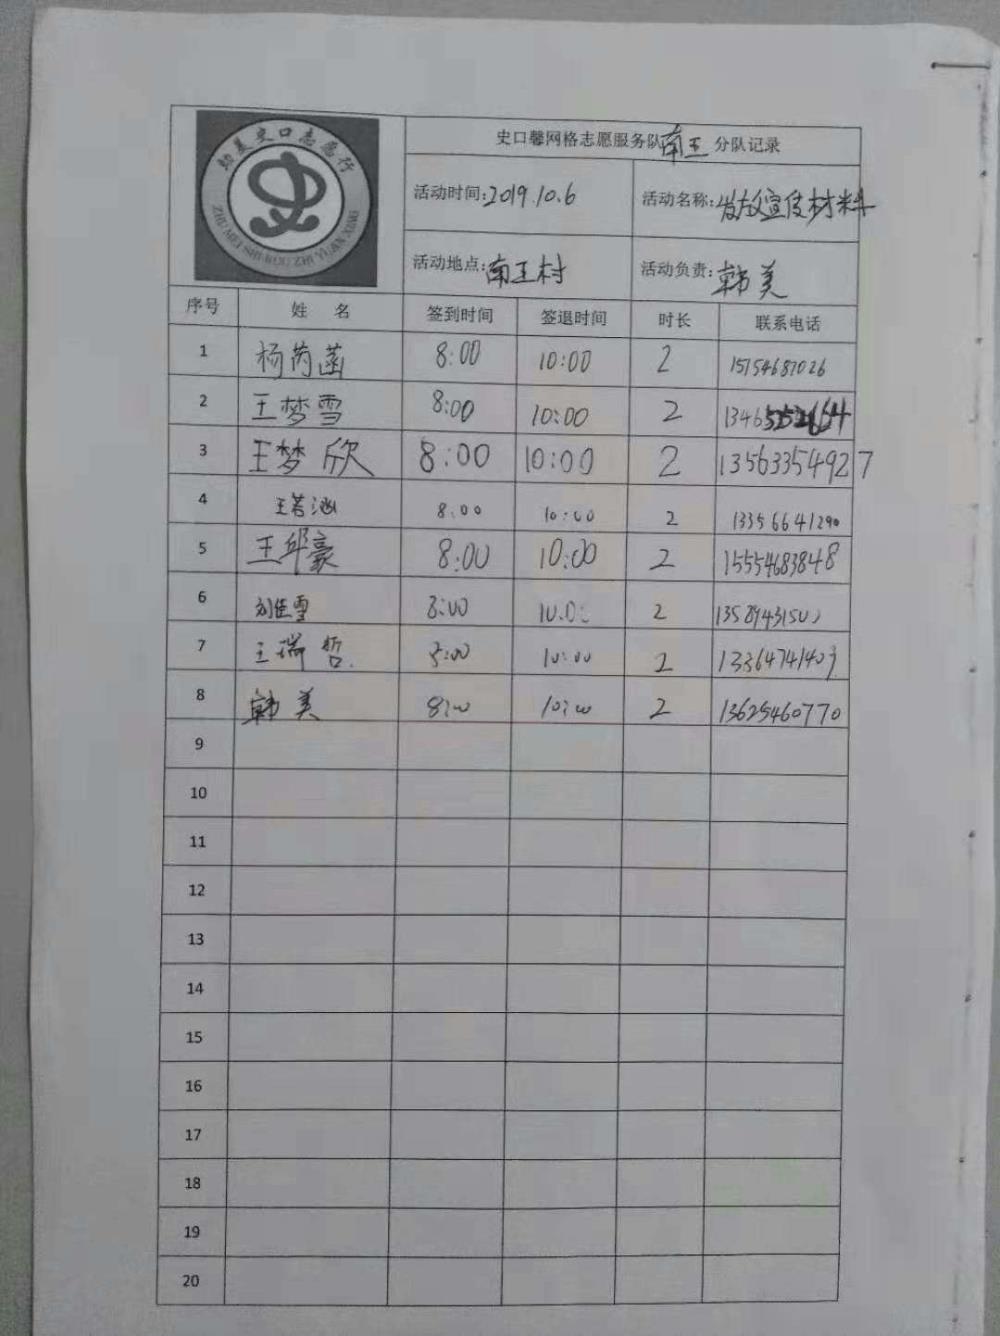 助美史口志愿行
ZHU MEI SHI KOU ZHI YUAN XING
史口馨网格志愿服务队南王分队记录
活动时间:2019.10.6 活动名称:发放宣传材料
活动地点:南王村 活动负责:韩美
序号 姓 名 签到时间 签退时间 时长 联系电话
1 杨芮菡 8:00 10:00 2 15754687026
2 王梦雪 8:00 10:00 2
3 王梦欣 8:00 10:00 2 13563354927
4 王若涵 8:00 10:00 2 13356641290
5 王邱豪 8:00 10:00 2 15554683848
6 刘佳雪 8:00 10:00 2
7 王瑞哲 8:00 10:00 2
8 韩美 8:00 10:00 2 13625460770
9
10
11
12
13
14
15
16
17
18
19
20